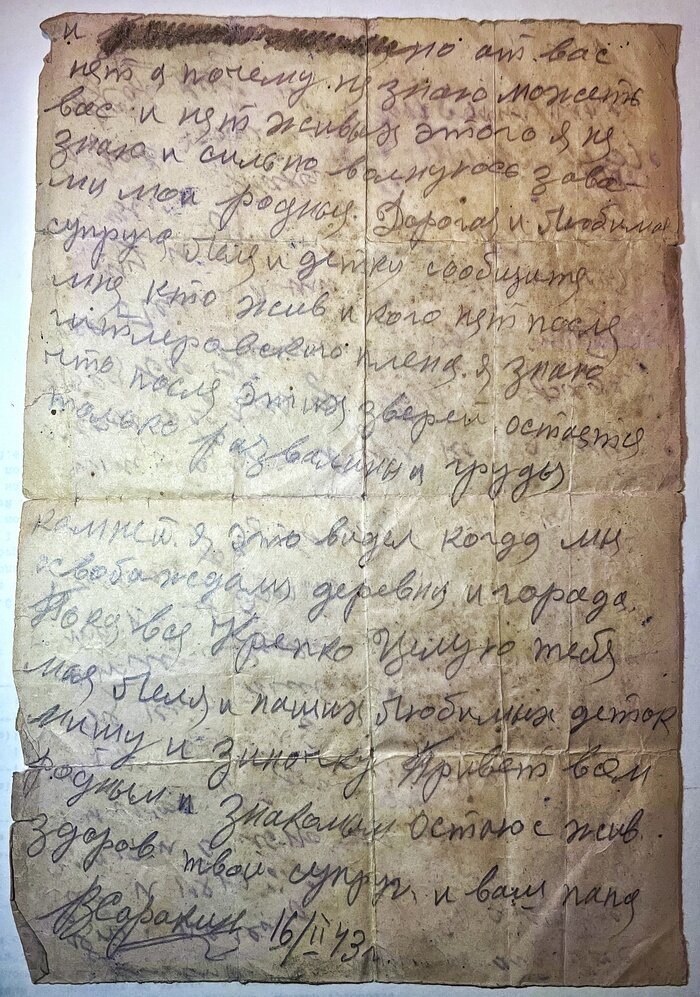 и но от вас
нет а почему не знаю можеть
вас и нет живых этого я не
знаю и сильно волнуюсь за ва-
ми мои родныя. Дорогая и Любимая
супруга Леля и детки сообщите
мне кто жив и кого нет после
гитлеровского плена. я знаю
что после этих зверей остается
только развалины и груды
камней. я это видел когда мы
освобаждали деревни и города.
Пока все Крепко Целую тебя
моя Леля и наших Любимых деток
мишу и зиночку Привет всем
родным и знакомым остаюс жив.
здоров твой супруг. и ваш папа
ВСоракин 16/II 43 г.